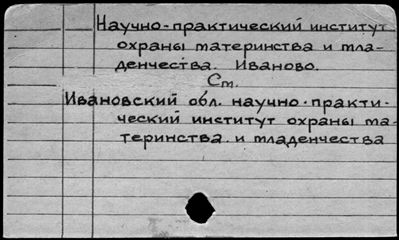 Научно-практический институт
охраны материнства и мла-
денчества. Иваново.
См.
Ивановский обл. научно-практи-
ческий институт охраны ма-
теринства и младенчества